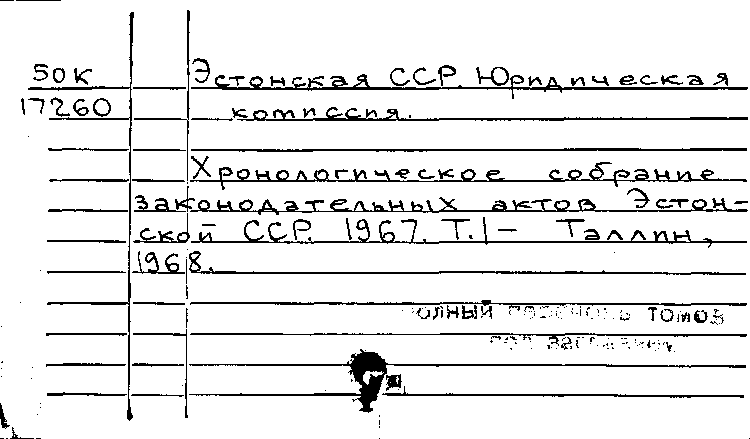 50К
17260
Эстонская ССР. Юридическая
комиссия.
Хронологическое собрание
законодательных актов Эстон-
ской ССР. 1967. Т.1– Таллин,
1968.
полный перечень томов
под заглавием